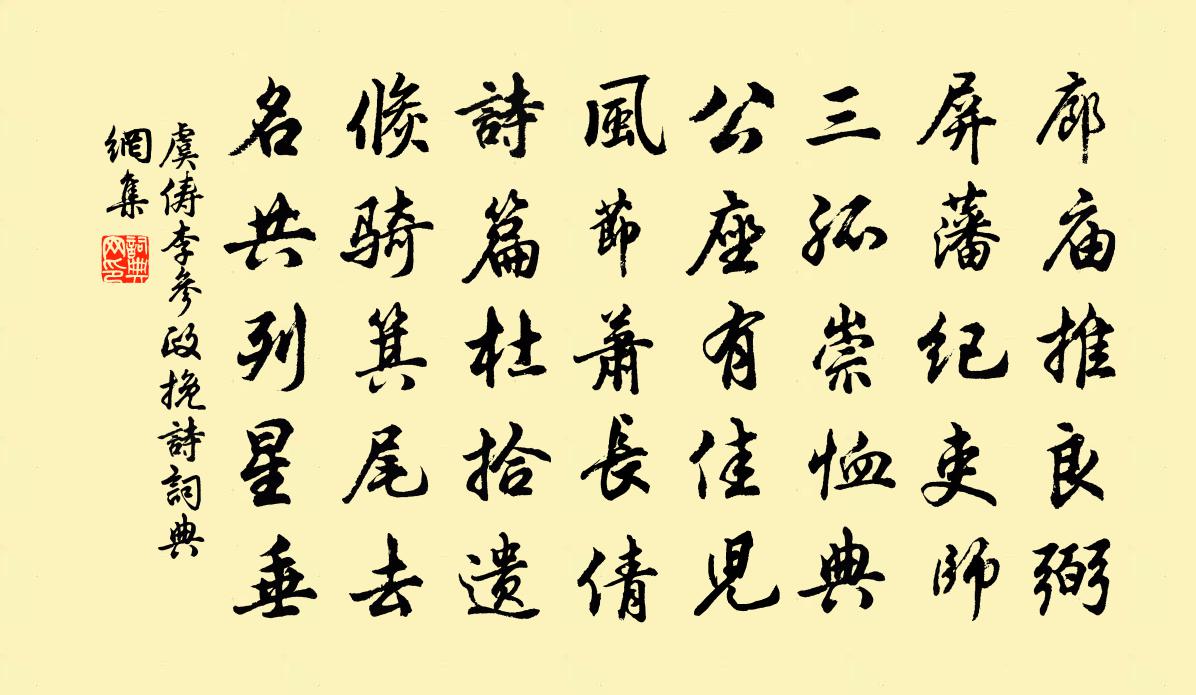 廊庙推良弼
屏藩纪吏师
三孤崇恤典
公座有佳児
風節蕭長倩
詩篇杜拾遗
倏骑箕尾去
名共列星垂
虞俦李參政挽詩詞典
網集
詞典网印